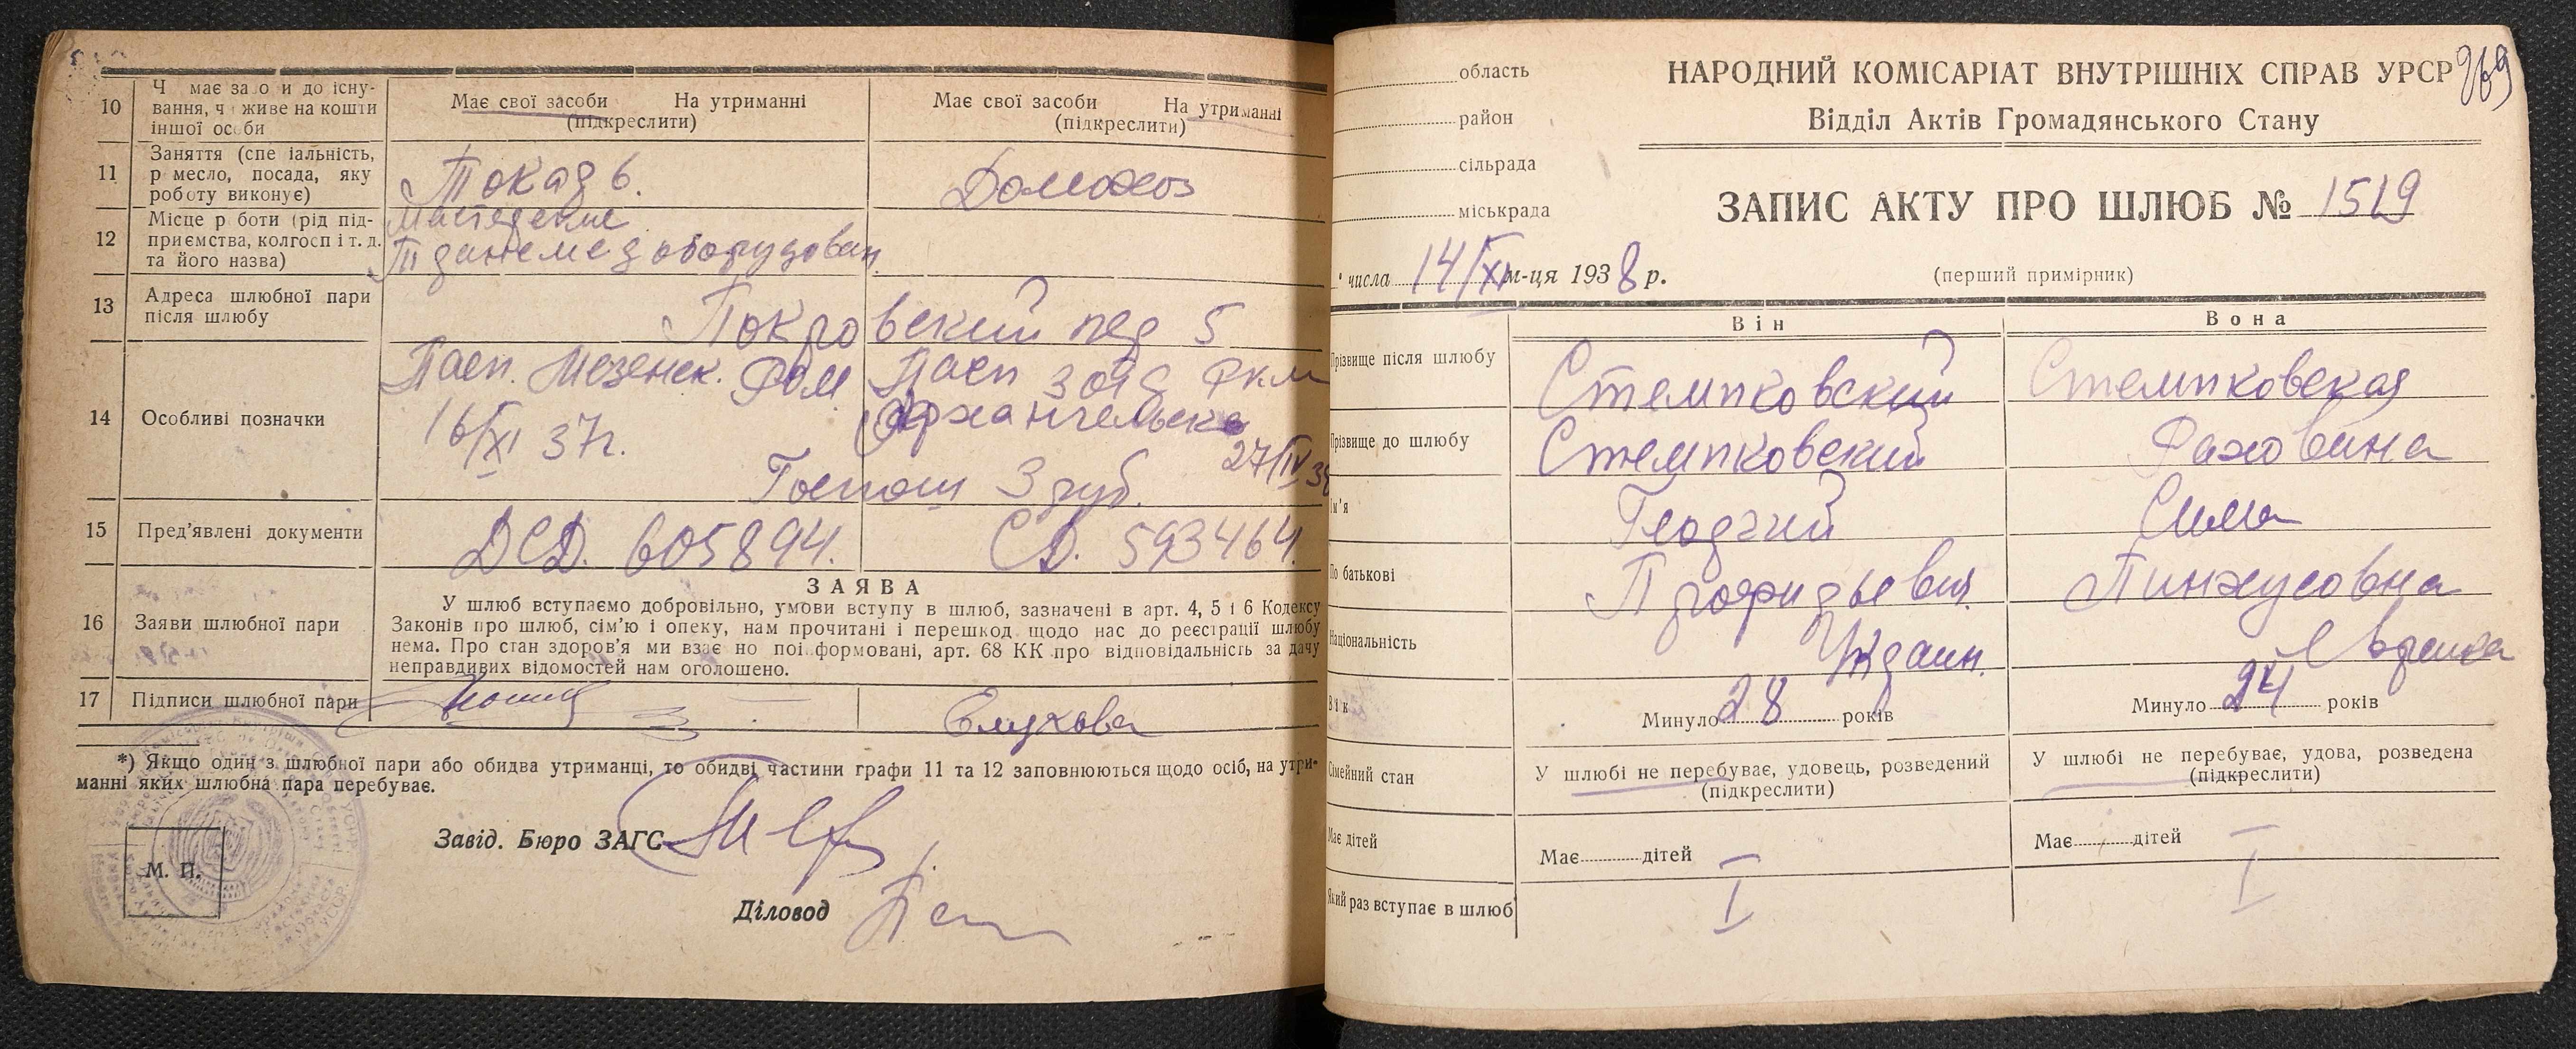 10 Ч має за о и до існу-
вання, ч живе на кошти
іншої особи
Має свої засоби На утриманні
(підкреслити)
Має свої засоби На утриманні
(підкреслити)
11 Заняття (спе іальність,
р месло, посада, яку
роботу виконує)
Токарь.
Домохоз
12 Місце р боти (рід під-
приємства, колгосп і т. д.
та його назва)
Мастерские
13 Адреса шлюбної пари
після шлюбу
Покровский пер 5
14 Особливі позначки
Пасп. Мезенск. РОМ
16/XI 37г.
Пасп 3 отд РКМ
Архангельска
27/IV 38
Госпош 3 руб.
15 Пред'явлені документи
ДСД. 605894.
СД. 593464.
16 Заяви шлюбної пари
ЗАЯВА
У шлюб вступаємо добровільно, умови вступу в шлюб, зазначені в арт. 4, 5 і 6 Кодексу
Законів про шлюб, сім'ю і опеку, нам прочитані і перешкод щодо нас до реєстрації шлюбу
нема. Про стан здоров'я ми взає но поі формовані, арт. 68 КК про відповідальність за дачу
неправдивих відомостей нам оголошено.
17 Підписи шлюбної пари
*) Якщо один з шлюбної пари або обидва утриманці, то обидві частини графи 11 та 12 заповнюються щодо осіб, на утри-
манні яких шлюбна пара перебуває.
Завід. Бюро ЗАГС
М. П.
Діловод
область
район
сільрада
міськрада
НАРОДНИЙ КОМІСАРІАТ ВНУТРІШНІХ СПРАВ УРСР
269
Відділ Актів Громадянського Стану
ЗАПИС АКТУ ПРО ШЛЮБ № 1519
числа 14/XI м-ця 1938 р.
(перший примірник)
Він
Вона
Прізвище після шлюбу
Стемпковский
Стемпковская
Прізвище до шлюбу
Стемпковский
Ім'я
Георгий
Сима
По батькові
Профирьевич
Пинхусовна
Національність
Украин.
Еврейка
Вік
Минуло 28 років
Минуло 24 років
Сімейний стан
У шлюбі не перебуває, удовець, розведений
(підкреслити)
У шлюбі не перебуває, удова, розведена
(підкреслити)
Має дітей
Має дітей
Має дітей
Який раз вступає в шлюб
I
I